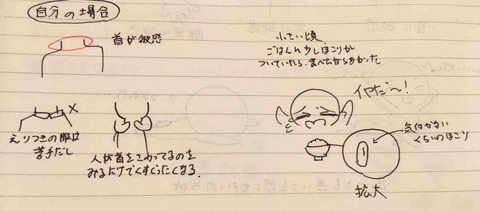 自分の場合
首が敏感
えりつきの服は
苦手だし
人が首をさわってるのを
みるだけでくすぐったくなる
小さい頃、
ごはんに少しほこりが
ついていたら、食べたがらなかった
イヤだ〜!
気付かない
くらいのほこり
拡大